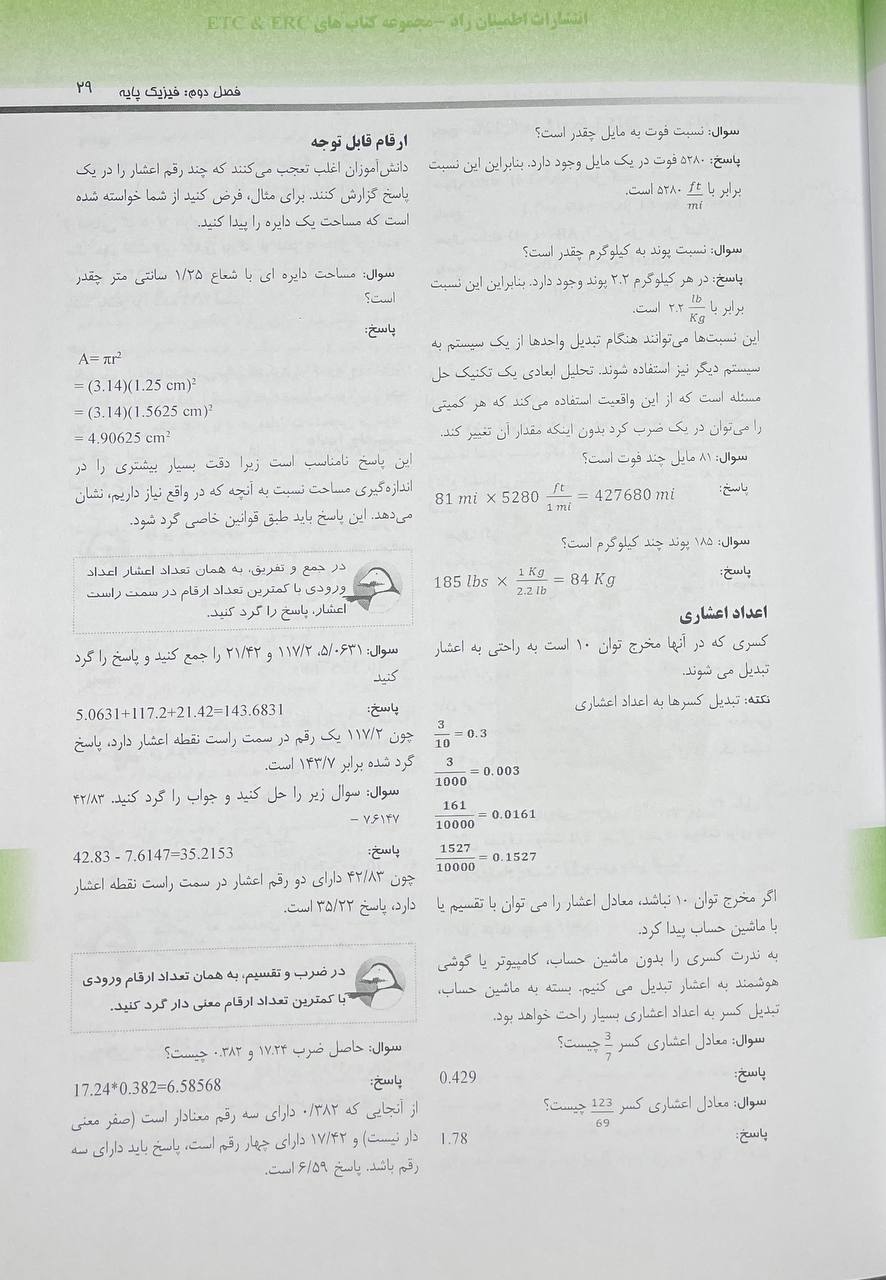 انتشارات اطمینان راد -مجموعه کتاب های ETC & ERC
فصل دوم: فیزیک پایه ۲۹
سوال: نسبت فوت به مایل چقدر است؟
پاسخ: ۵۲۸۰ فوت در یک مایل وجود دارد. بنابراین این نسبت
برابر با ft/mi ۵۲۸۰ است.
سوال: نسبت پوند به کیلوگرم چقدر است؟
پاسخ: در هر کیلوگرم ۲.۲ پوند وجود دارد. بنابراین این نسبت
برابر با lb/Kg ۲.۲ است.
این نسبت‌ها می‌توانند هنگام تبدیل واحدها از یک سیستم به
سیستم دیگر نیز استفاده شوند. تحلیل ابعادی یک تکنیک حل
مسئله است که از این واقعیت استفاده می‌کند که هر کمیتی
را می‌توان در یک ضرب کرد بدون اینکه مقدار آن تغییر کند.
سوال: ۸۱ مایل چند فوت است؟
پاسخ: 81 mi × 5280 ft/1 mi = 427680 mi
سوال: ۱۸۵ پوند چند کیلوگرم است؟
پاسخ: 185 lbs × 1 Kg/2.2 lb = 84 Kg
اعداد اعشاری
کسری که در آنها مخرج توان ۱۰ است به راحتی به اعشار
تبدیل می شوند.
نکته: تبدیل کسرها به اعداد اعشاری
3/10 = 0.3
3/1000 = 0.003
161/10000 = 0.0161
1527/10000 = 0.1527
اگر مخرج توان ۱۰ نباشد، معادل اعشار را می توان با تقسیم یا
با ماشین حساب پیدا کرد.
به ندرت کسری را بدون ماشین حساب، کامپیوتر یا گوشی
هوشمند به اعشار تبدیل می کنیم. بسته به ماشین حساب،
تبدیل کسر به اعداد اعشاری بسیار راحت خواهد بود.
سوال: معادل اعشاری کسر 3/7 چیست؟
پاسخ: 0.429
سوال: معادل اعشاری کسر 123/69 چیست؟
پاسخ: 1.78
ارقام قابل توجه
دانش‌آموزان اغلب تعجب می‌کنند که چند رقم اعشار را در یک
پاسخ گزارش کنند. برای مثال، فرض کنید از شما خواسته شده
است که مساحت یک دایره را پیدا کنید.
سوال: مساحت دایره ای با شعاع ۱/۲۵ سانتی متر چقدر
است؟
پاسخ:
A= πr²
= (3.14)(1.25 cm)²
= (3.14)(1.5625 cm)²
= 4.90625 cm²
این پاسخ نامناسب است زیرا دقت بسیار بیشتری را در
اندازه‌گیری مساحت نسبت به آنچه که در واقع نیاز داریم، نشان
می‌دهد. این پاسخ باید طبق قوانین خاصی گرد شود.
در جمع و تفریق، به همان تعداد اعشار اعداد
ورودی با کمترین تعداد ارقام در سمت راست
اعشار، پاسخ را گرد کنید.
سوال: ۵/۰۶۳۱، ۱۱۷/۲ و ۲۱/۴۲ را جمع کنید و پاسخ را گرد
کنید
پاسخ: 5.0631+117.2+21.42=143.6831
چون ۱۱۷/۲ یک رقم در سمت راست نقطه اعشار دارد، پاسخ
گرد شده برابر ۱۴۳/۷ است.
سوال: سوال زیر را حل کنید و جواب را گرد کنید. ۴۲/۸۳
– ۷.۶۱۴۷
پاسخ: 42.83 - 7.6147=35.2153
چون ۴۲/۸۳ دارای دو رقم اعشار در سمت راست نقطه اعشار
دارد، پاسخ ۳۵/۲۲ است.
در ضرب و تقسیم، به همان تعداد ارقام ورودی
با کمترین تعداد ارقام معنی دار گرد کنید.
سوال: حاصل ضرب ۱۷.۲۴ و ۰.۳۸۲ چیست؟
پاسخ: 17.24*0.382=6.58568
از آنجایی که ۰/۳۸۲ دارای سه رقم معنادار است (صفر معنی
دار نیست) و ۱۷/۴۲ دارای چهار رقم است، پاسخ باید دارای سه
رقم باشد. پاسخ ۶/۵۹ است.